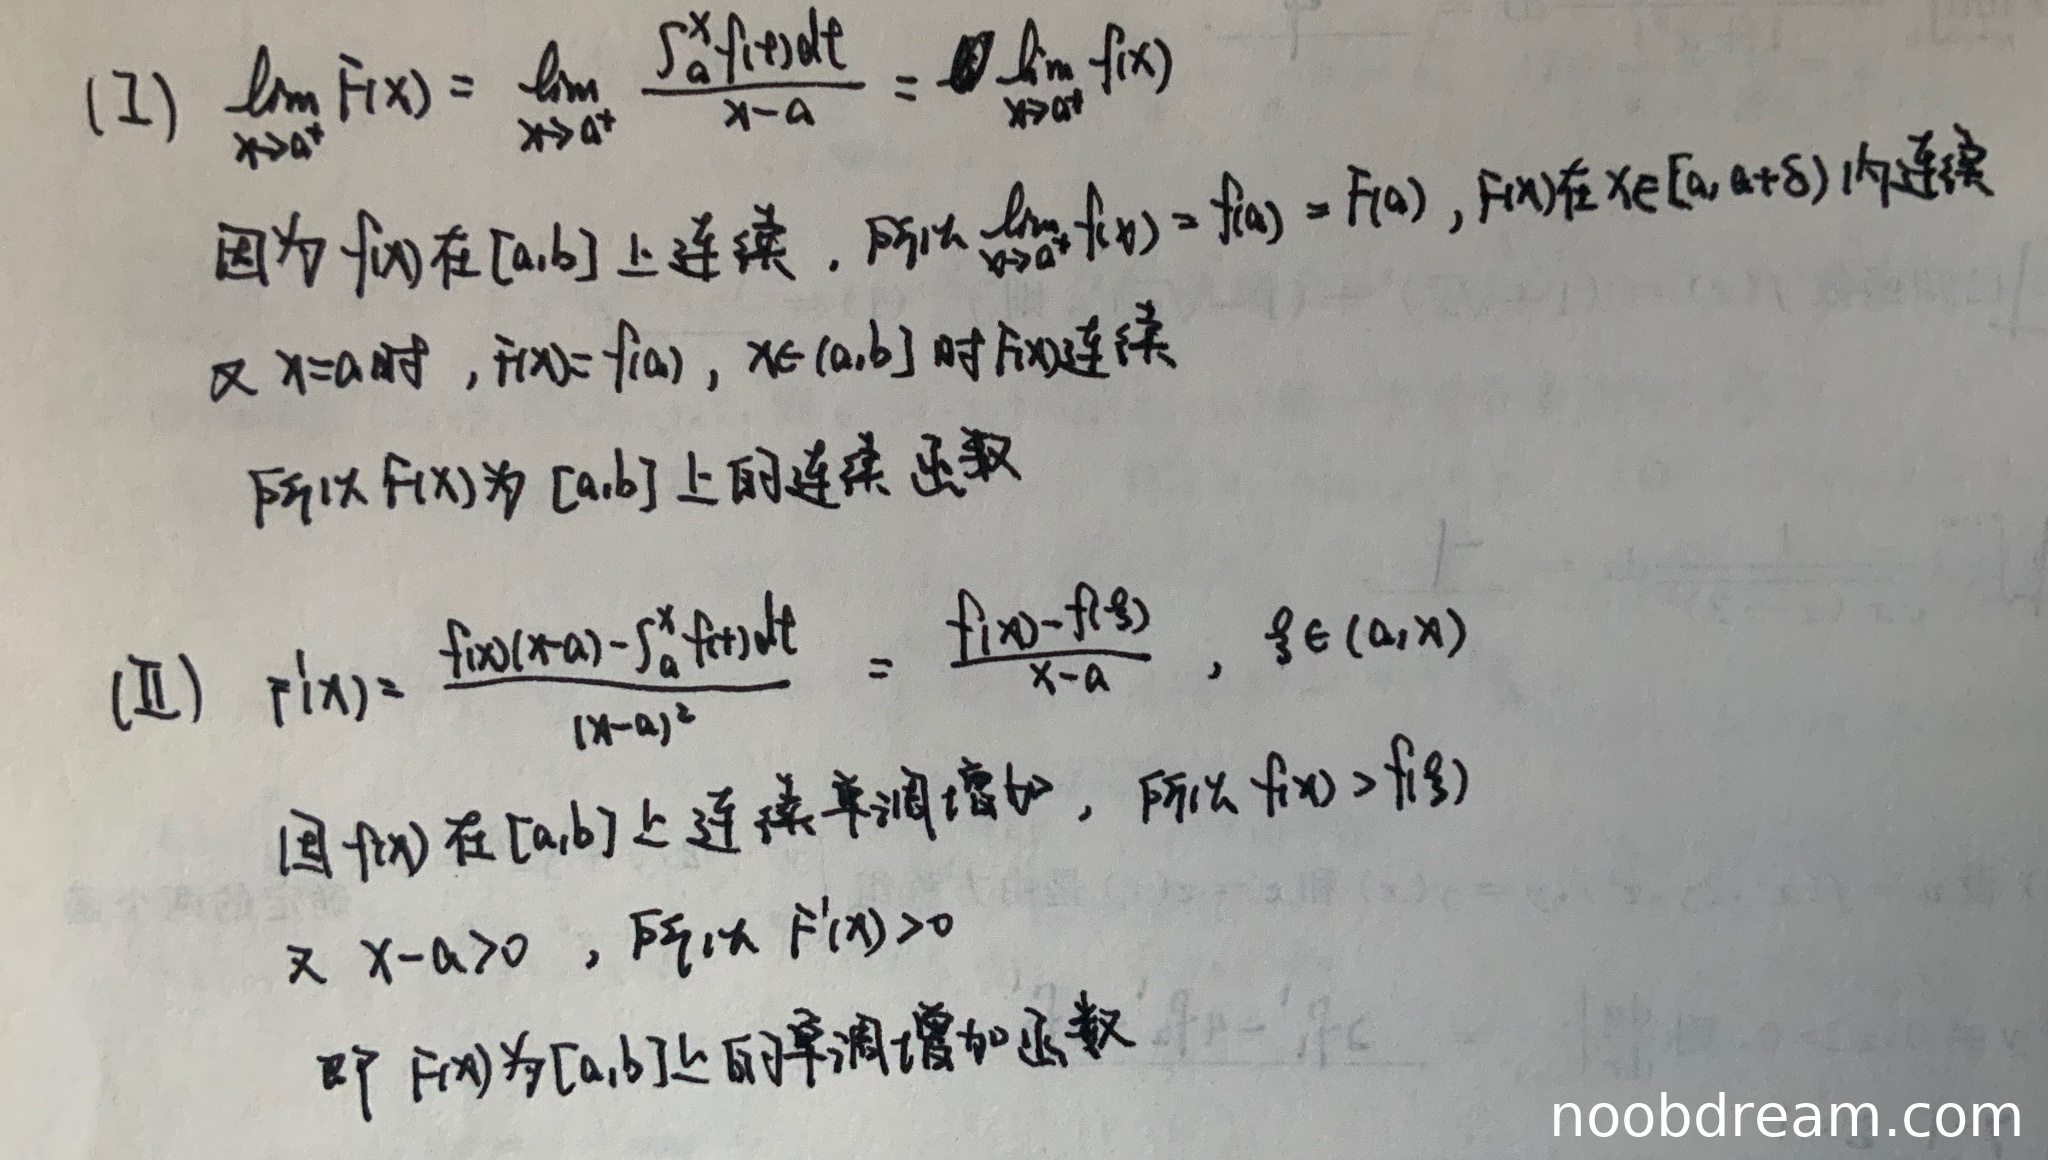 (I) lim x→a⁺ F(x) = lim x→a⁺ ∫ₐˣ f(t)dt / (x-a) = lim x→a⁺ f(x)
因为 f(x) 在 [a,b] 上连续，所以 lim x→a⁺ f(x) = f(a) = F(a)，F(x)在 x∈[a, a+δ) 内连续
又 x=a时，F(x)=f(a)，x∈(a,b] 时 F(x)连续
所以 F(x) 为 [a,b] 上的连续函数
(II) F'(x) = [f(x)(x-a) - ∫ₐˣ f(t)dt] / (x-a)² = [f(x)-f(ξ)] / (x-a)，ξ∈(a,x)
因 f(x) 在 [a,b] 上连续单调增加，所以 f(x) > f(ξ)
又 x-a>0，所以 F'(x)>0
即 F(x)为[a,b]上的单调增加函数
noobdream.com